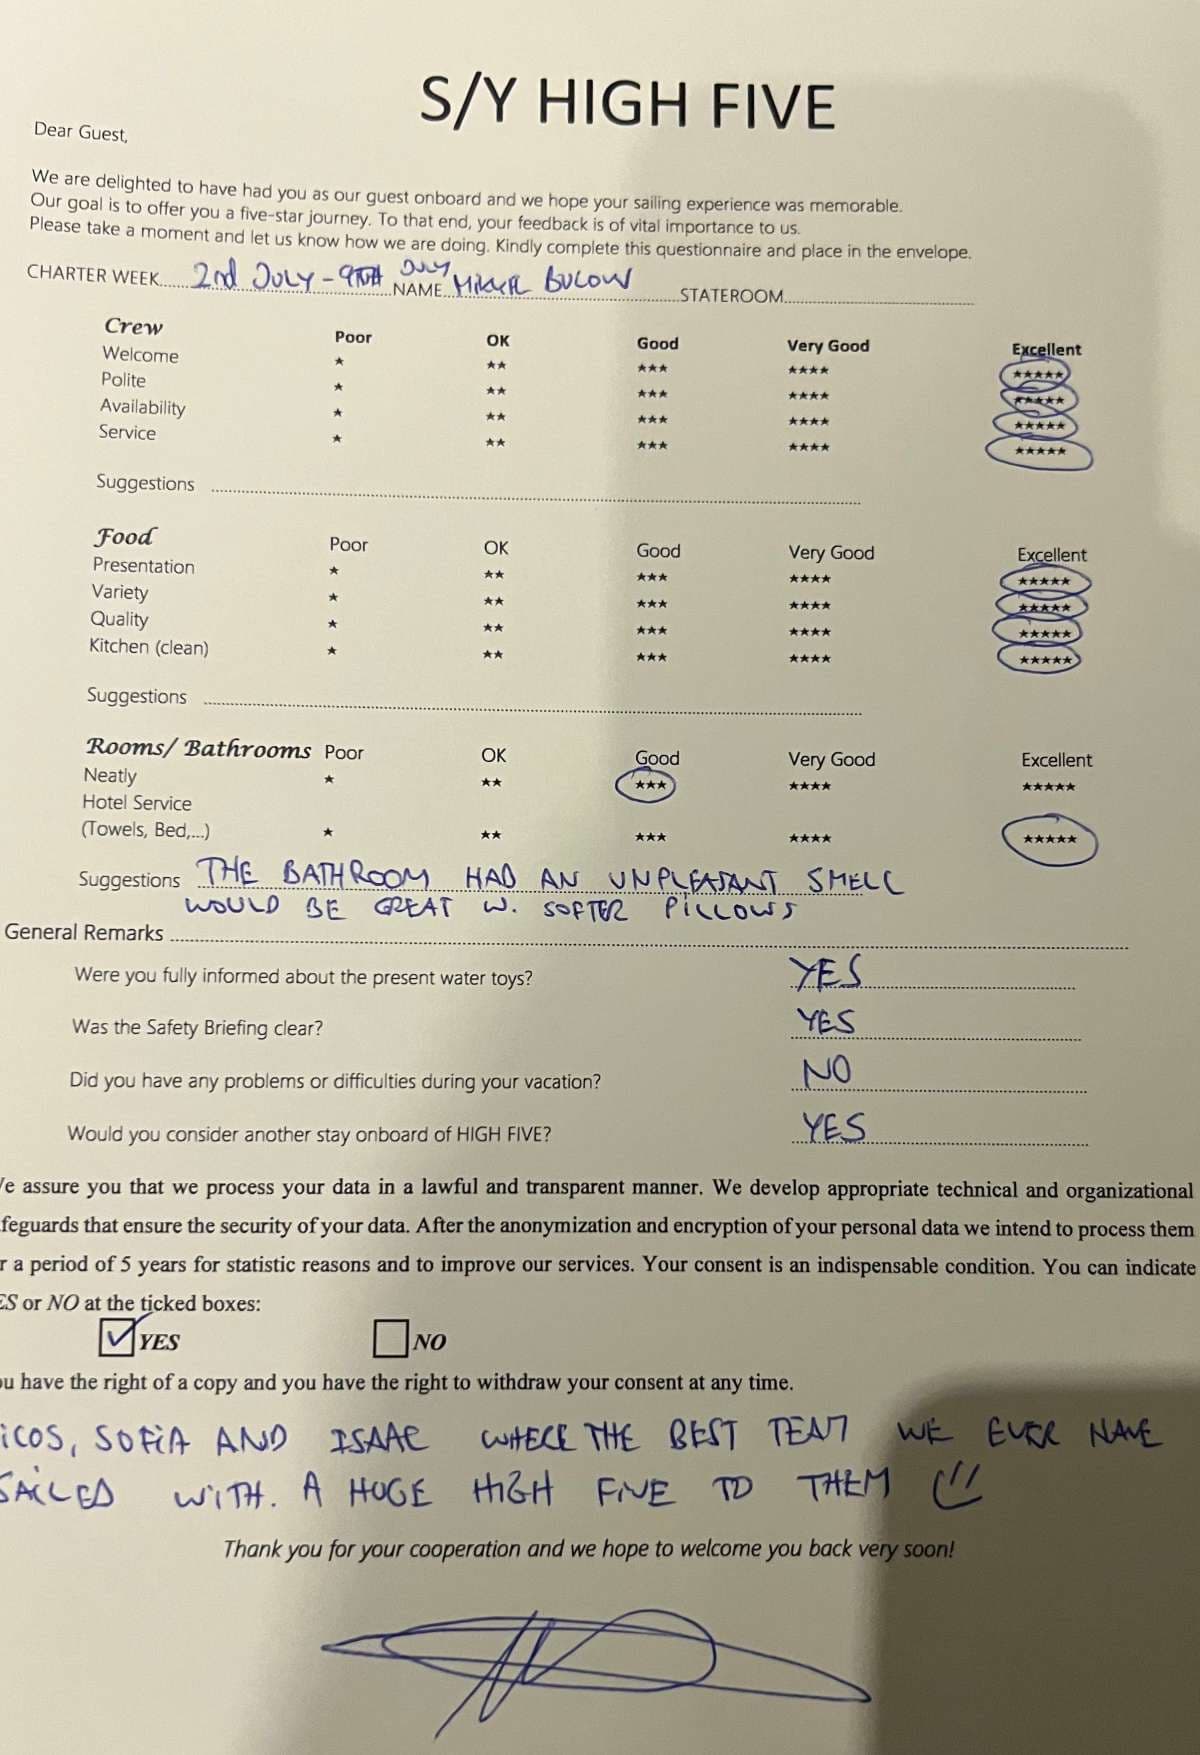 S/Y HIGH FIVE
Dear Guest,
We are delighted to have had you as our guest onboard and we hope your sailing experience was memorable.
Our goal is to offer you a five-star journey. To that end, your feedback is of vital importance to us.
Please take a moment and let us know how we are doing. Kindly complete this questionnaire and place in the envelope.
CHARTER WEEK 2nd JULY - 9TH JULY NAME BULOW STATEROOM
Crew Poor OK Good Very Good Excellent
Welcome ★ ★★ ★★★ ★★★★ ★★★★★
Polite ★ ★★ ★★★ ★★★★ ★★★★★
Availability ★ ★★ ★★★ ★★★★ ★★★★★
Service ★ ★★ ★★★ ★★★★ ★★★★★
Suggestions
Food Poor OK Good Very Good Excellent
Presentation ★ ★★ ★★★ ★★★★ ★★★★★
Variety ★ ★★ ★★★ ★★★★ ★★★★★
Quality ★ ★★ ★★★ ★★★★ ★★★★★
Kitchen (clean) ★ ★★ ★★★ ★★★★ ★★★★★
Suggestions
Rooms/ Bathrooms Poor OK Good Very Good Excellent
Neatly ★ ★★ ★★★ ★★★★ ★★★★★
Hotel Service
(Towels, Bed,...) ★ ★★ ★★★ ★★★★ ★★★★★
Suggestions THE BATHROOM HAD AN UNPLEASANT SMELL
WOULD BE GREAT W. SOFTER PILLOWS
General Remarks
Were you fully informed about the present water toys? YES
Was the Safety Briefing clear? YES
Did you have any problems or difficulties during your vacation? NO
Would you consider another stay onboard of HIGH FIVE? YES
e assure you that we process your data in a lawful and transparent manner. We develop appropriate technical and organizational
feguards that ensure the security of your data. After the anonymization and encryption of your personal data we intend to process them
r a period of 5 years for statistic reasons and to improve our services. Your consent is an indispensable condition. You can indicate
ES or NO at the ticked boxes:
YES NO
ou have the right of a copy and you have the right to withdraw your consent at any time.
icos, SOFIA AND ISAAC WHERE THE BEST TEAM WE EVER HAVE
SAILED WITH. A HUGE HIGH FIVE TO THEM
Thank you for your cooperation and we hope to welcome you back very soon!